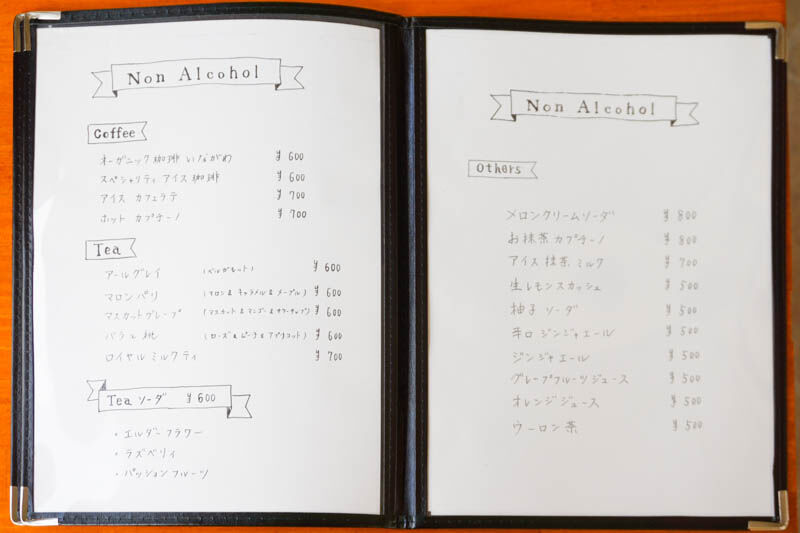 Non Alcohol
Coffee
オーガニック珈琲 いながわ ¥600
スペシャリティ アイス 珈琲 ¥600
アイス カフェラテ ¥700
ホット カプチーノ ¥700
Tea
アールグレイ (ベルガモット) ¥600
マロンパリ (マロン & キャラメル & メープル) ¥600
マスカットグレープ (マスカット & マンゴー & サワーチップ) ¥600
バラと桃 (ローズ & ピーチ & アプリコット) ¥600
ロイヤル ミルクティ ¥700
Tea ソーダ ¥600
・エルダーフラワー
・ラズベリィ
・パッションフルーツ
Non Alcohol
Others
メロンクリームソーダ ¥800
お抹茶カプチーノ ¥800
アイス 抹茶 ミルク ¥700
生レモンスカッシュ ¥500
柚子 ソーダ ¥500
辛口 ジンジャエール ¥500
ジンジャエール ¥500
グレープフルーツジュース ¥500
オレンジジュース ¥500
ウーロン茶 ¥500